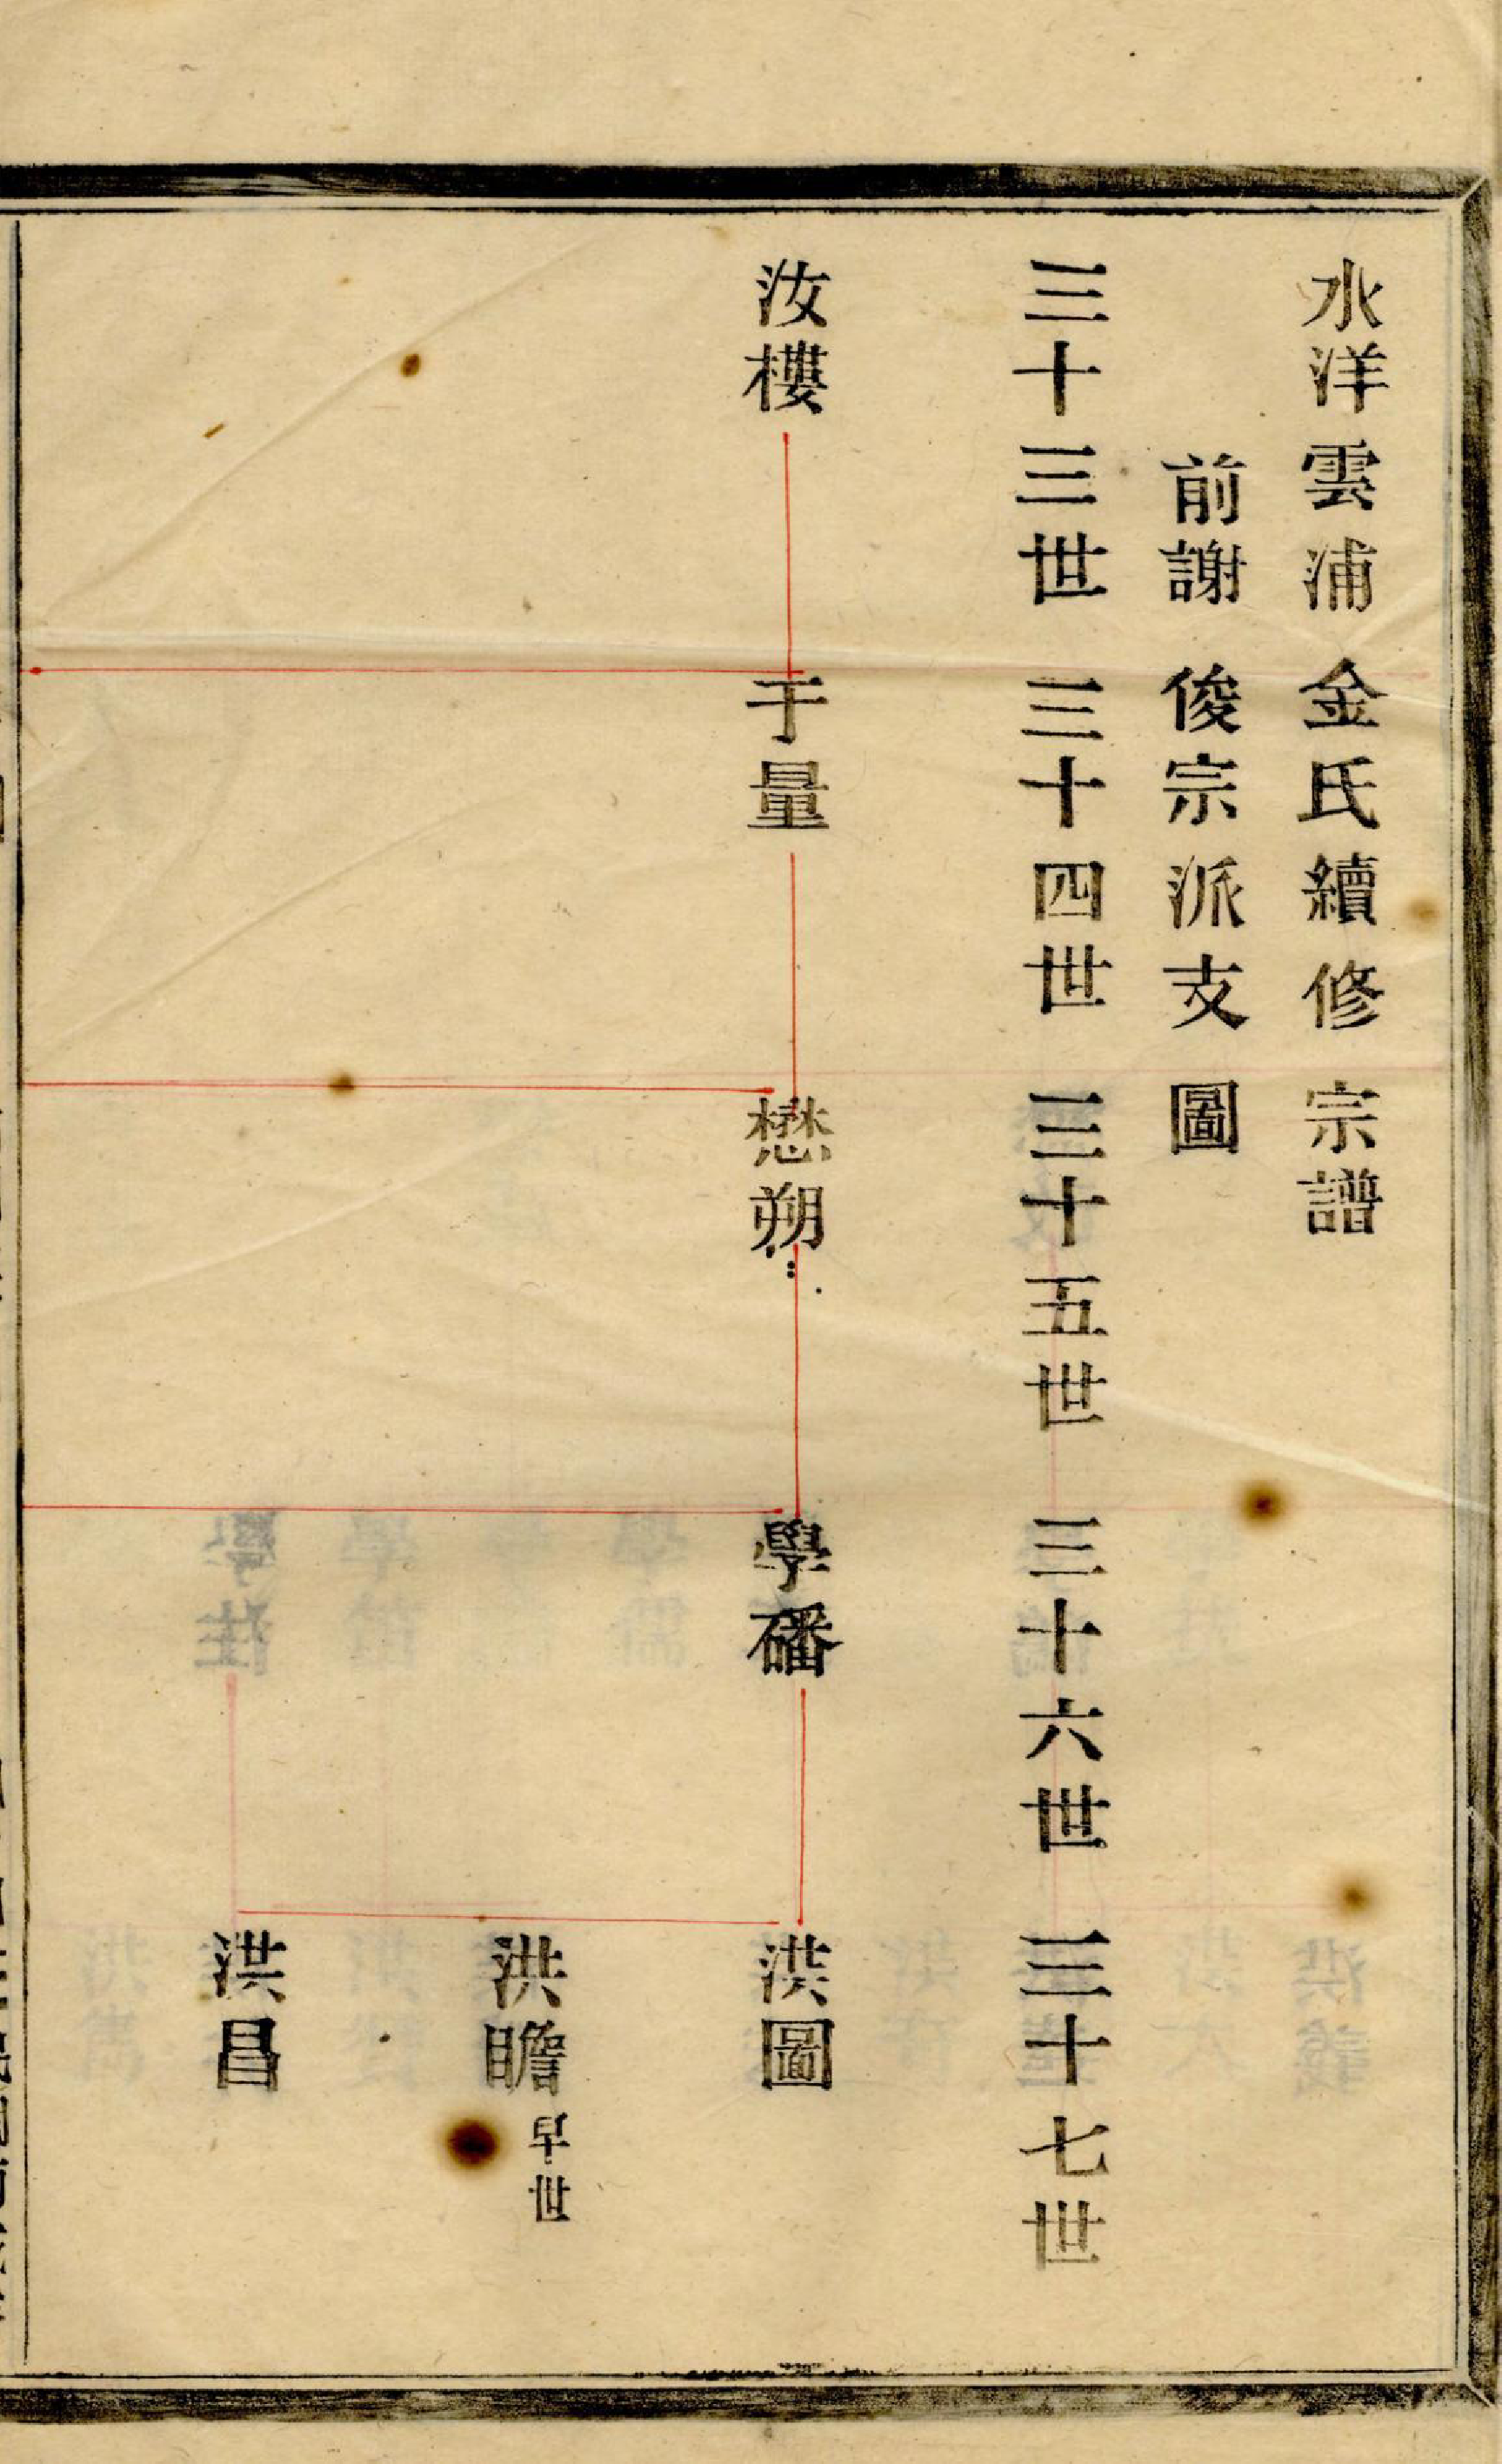 水洋雲浦金氏續修宗譜
前謝俊宗派支圖
三十三世 三十四世 三十五世 三十六世 三十七世
汝樓 于量 懋朔 學磻 洪圖
洪瞻 早世
洪昌